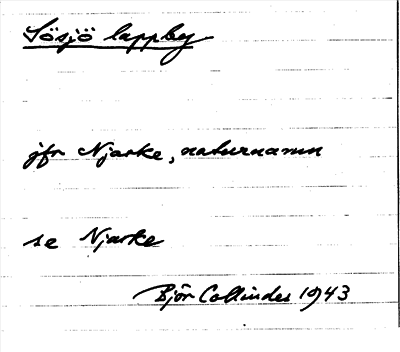 Sösjö lappby
jfr Njarke, naturnamn
se Njarke
Björ Collinder 1943